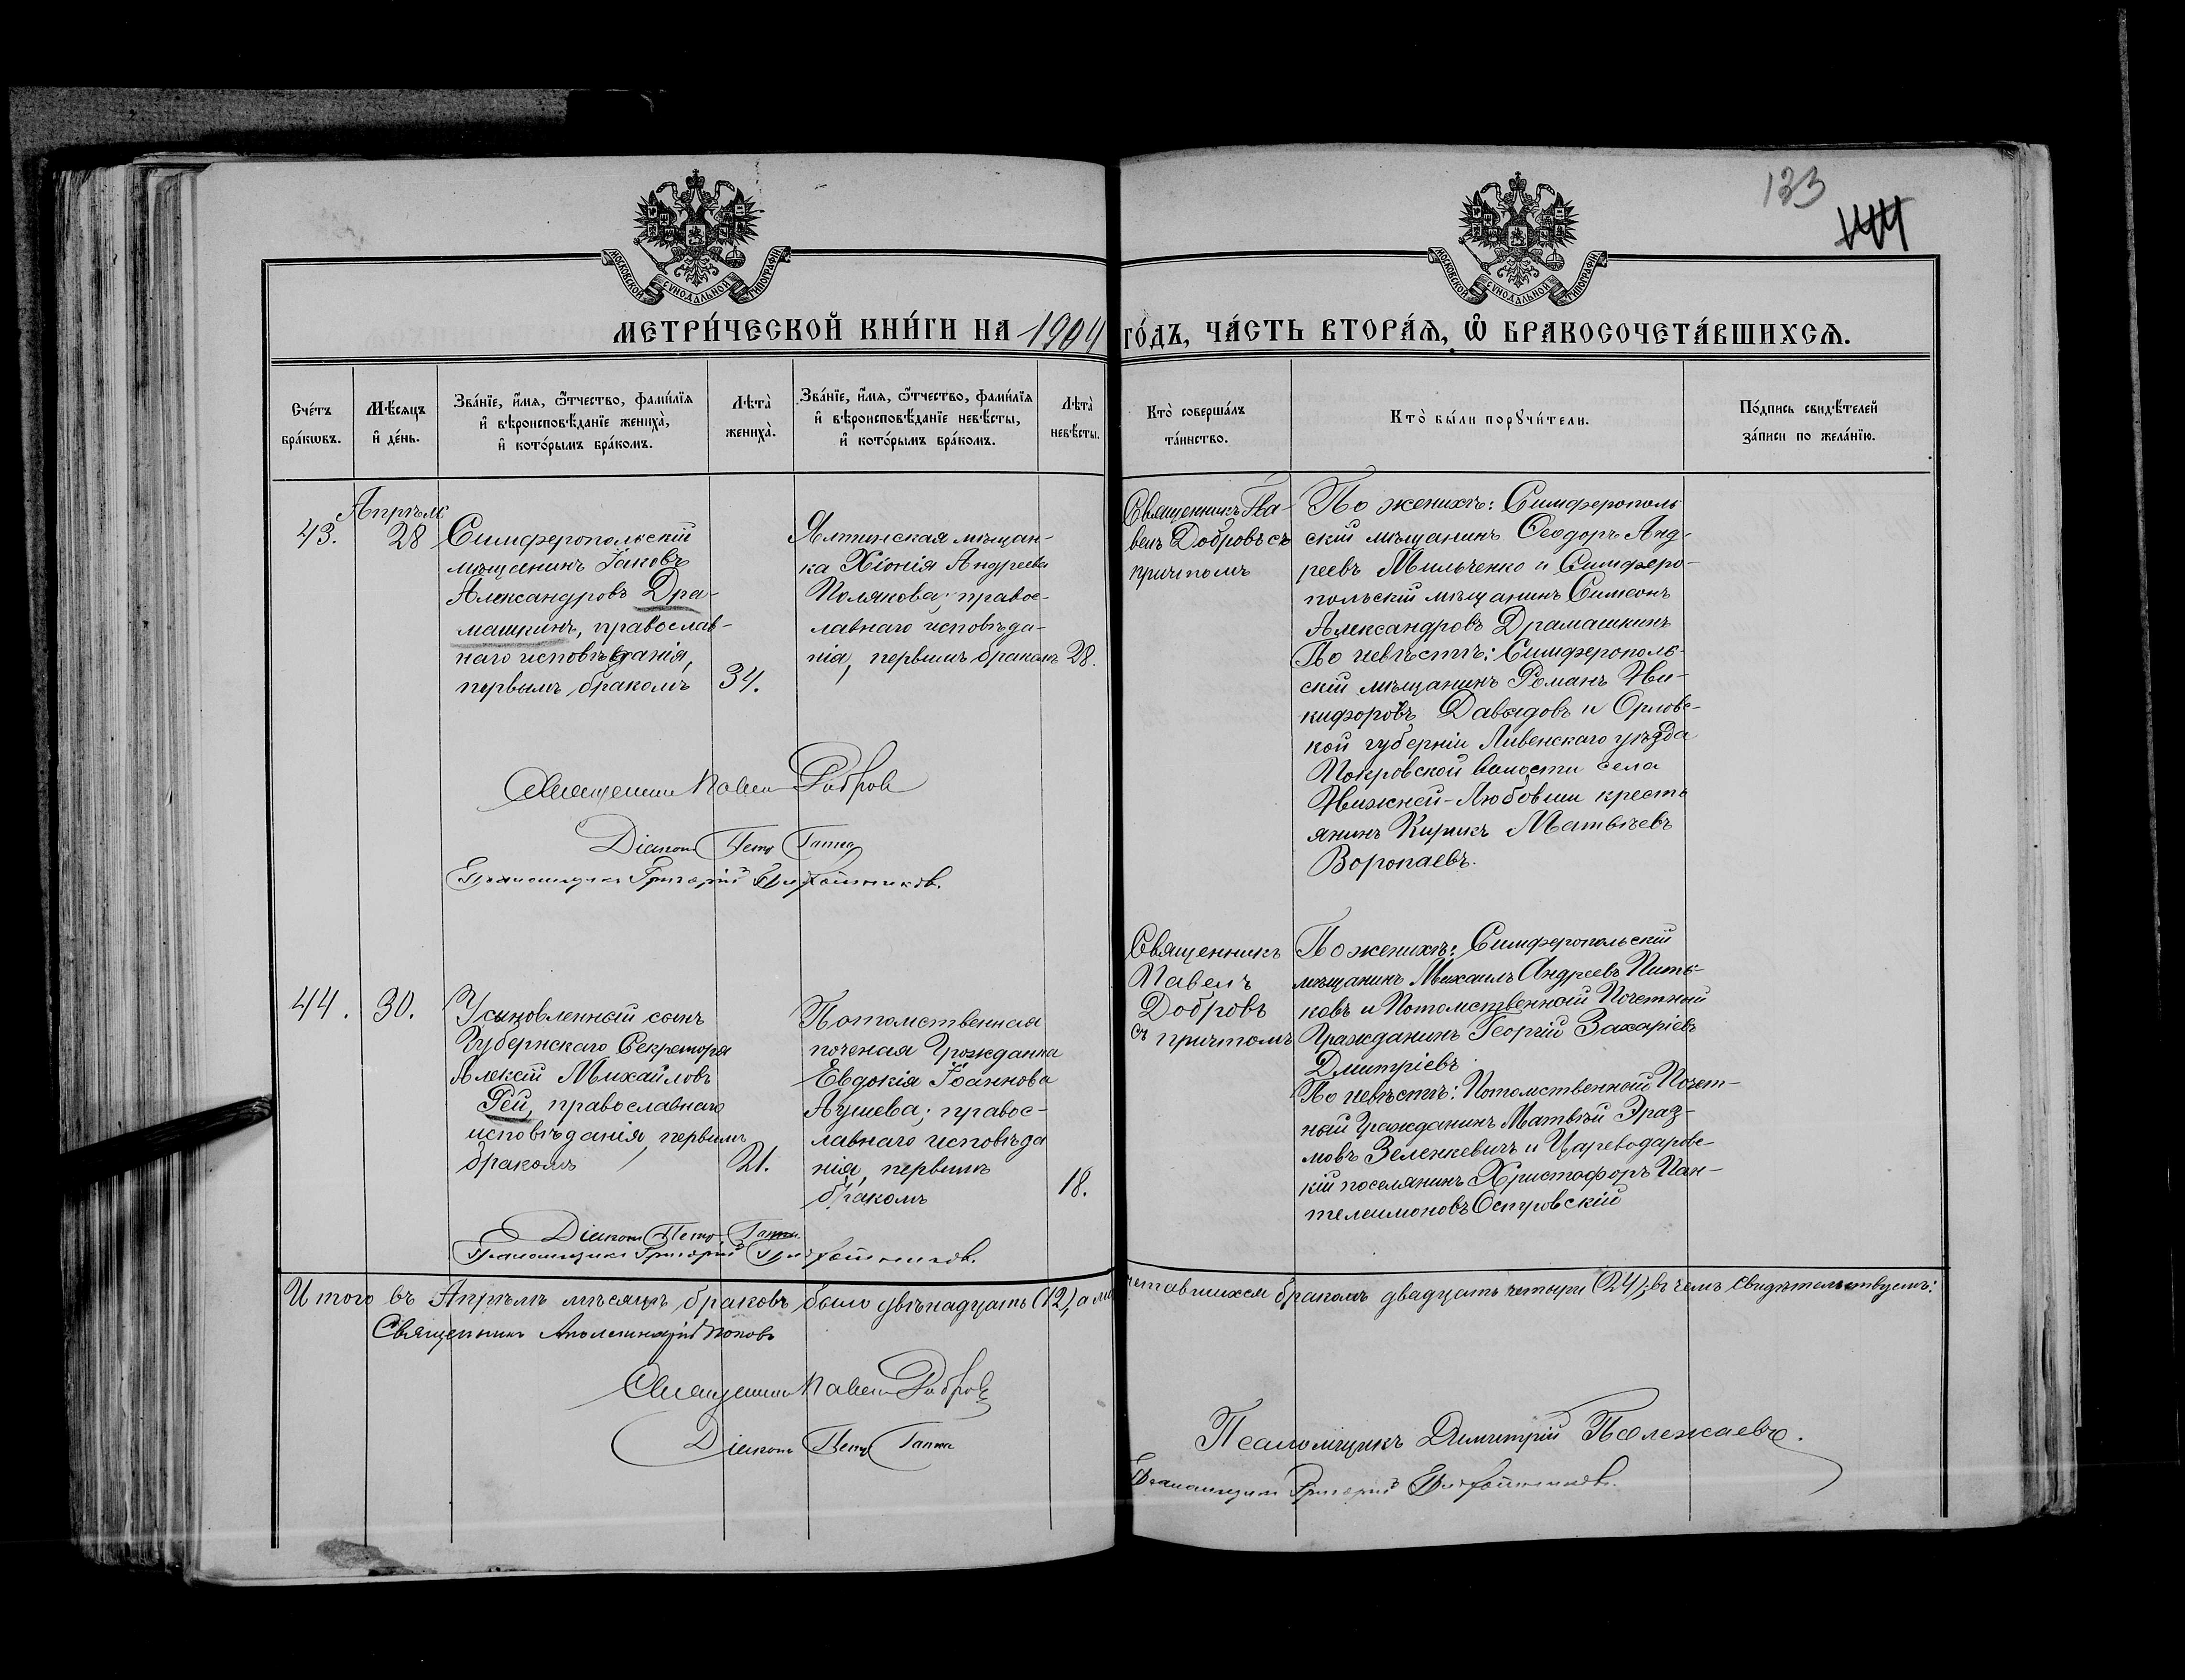 133
144
МОСКОВСКОЙ СѴНОДАЛЬНОЙ ТИПОГРАФІИ
МОСКОВСКОЙ СѴНОДАЛЬНОЙ ТИПОГРАФІИ
МЕТРИ́ЧЕСКОЙ КНИ́ГИ НА 1904 ГО́ДЪ, ЧА́СТЬ ВТОРА́Ѧ, Ѡ҆ БРАКОСОЧЕТА́ВШИХСѦ.
Сче́тъ бра́кѡвъ.
Мѣ́сѧцъ и҆ де́нь.
Зва́нїе, и҆́мѧ, ѻ҆́тчество, фами́лїѧ и҆ вѣроисповѣ́данїе жениха̀, и҆ кото́рымъ бра́комъ.
Лѣта̀ жениха̀.
Зва́нїе, и҆́мѧ, ѻ҆́тчество, фами́лїѧ и҆ вѣроисповѣ́данїе невѣ́сты, и҆ кото́рымъ бра́комъ.
Лѣта̀ невѣ́сты.
Кто̀ соверша́лъ та́инство.
Кто̀ бы́ли порꙋчи́тели.
По́дпись свидѣ́телей за́писи по жела́нїю.
43.
Апрѣль
28
Симферопольскій
мѣщанинъ Іаковъ
Александровъ Дра-
машкинъ, православ-
наго исповѣданія,
первымъ бракомъ
34.
Ялтинская мѣщан-
ка Хіонія Андреева
Полякова; правос-
лавнаго исповѣда-
нія, первымъ бракомъ
28.
Священникъ Па-
велъ Добровъ съ
причтомъ
По женихѣ: Симферополь
скій мѣщанинъ Ѳеодоръ Анд-
реевъ Мильченко и Симферо-
польскій мѣщанинъ Симеонъ
Александровъ Драмашкинъ
По невѣстѣ: Симферополь-
скій мѣщанинъ Романъ Ни-
кифоровъ Давыдовъ и Орловс-
кой губерніи Ливенскаго уѣзда
Покровской волости села
Нижней-Любовши кресть
янинъ Кирикъ Матвѣевъ
Воропаевъ.
Священникъ Павелъ Добровъ
Діаконъ Петръ Гаппа
Псаломщикъ Григорій
44.
30.
Усыновленный сынъ
Губернскаго Секретаря
Алексій Михайловъ
Рей, православнаго
исповѣданія, первымъ
бракомъ
21.
Потомственная
поченая Гражданка
Евдокія Іоаннова
Аушева; правос-
лавнаго исповѣда
нія, первымъ
бракомъ
18.
Священникъ
Павелъ
Добровъ
съ причтомъ
По женихѣ: Симферопольскій
мѣщанинъ Михаилъ Андреевъ Пить-
ковъ и Потомственный Почетный
Гражданинъ Георгій Захаріевъ
Дмитріевъ
По невѣстѣ: Потомственный Почет-
ный Гражданинъ Матвѣй Эраз-
мовъ Зеленкевичъ и Цареводаровс-
кій поселянинъ Христофоръ Пан-
телеимоновъ Островскій
Діаконъ Петръ Гаппа
Псаломщикъ Григорій
Итого въ Апрѣлѣ мѣсяцѣ браковъ было двѣнадцать (12), а
четавшихся бракомъ двадцать четыре (24); въ чемъ свидѣтельствуемъ:
Священникъ Аполлинарій Поповъ
Священникъ Павелъ Добровъ
Діаконъ Петръ Гаппа
Псаломщикъ Димитрій Полежаевъ.
Псаломщикъ Григорій